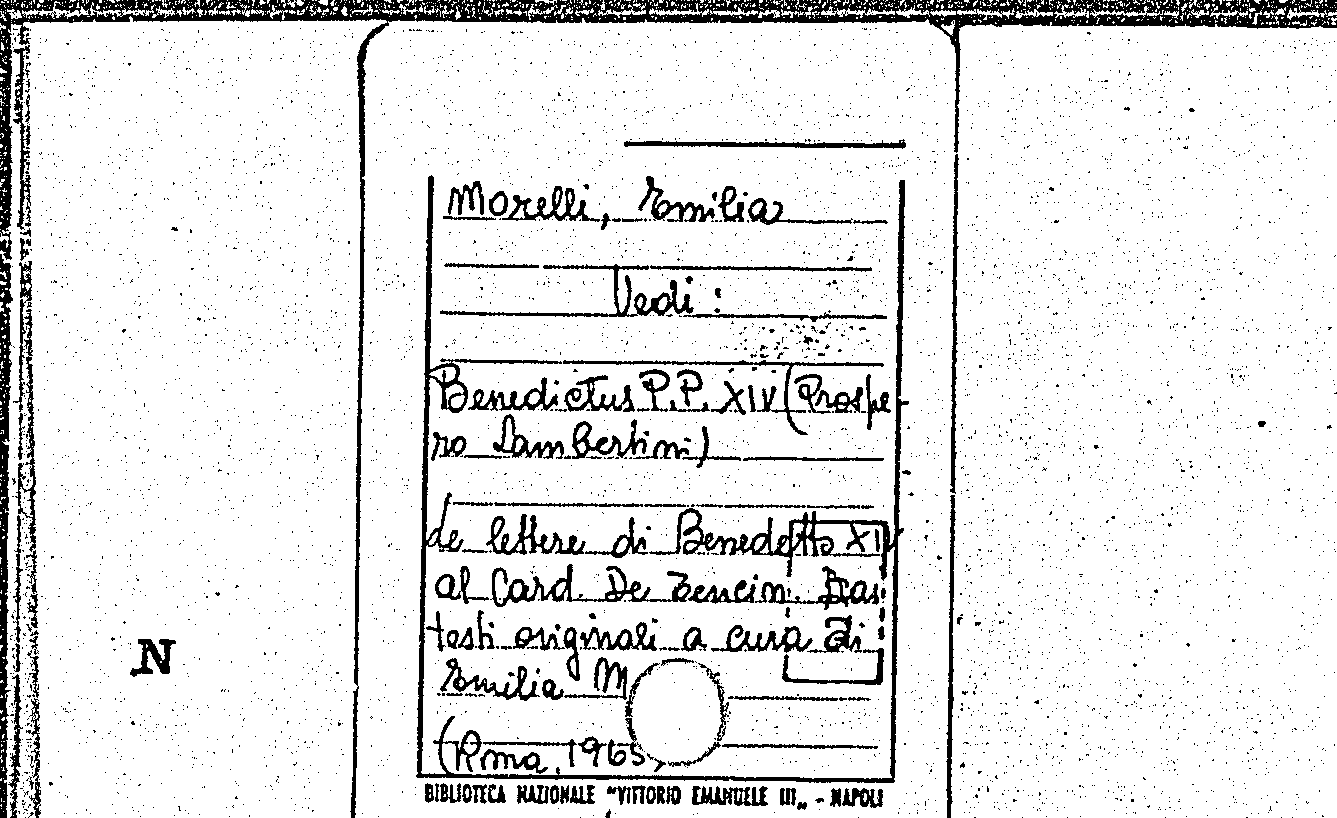 Morelli, Emilia
Vedi :
Benedictus P.P. XIV (Prospe-
ro Lambertini)
Le lettere di Benedetto XIV
al Card. De Tencin. Dai
testi originali a cura di
Emilia M
(Roma, 1965)
BIBLIOTECA NAZIONALE "VITTORIO EMANUELE III„ - NAPOLI
N